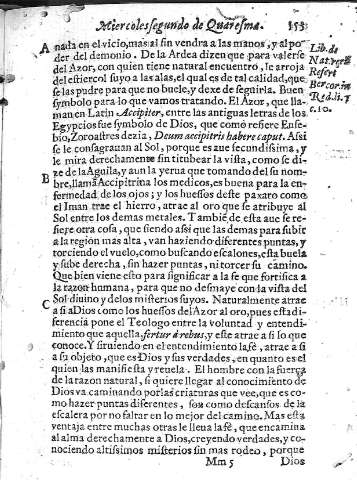 Miercoles segundo de Quaresma. 553
A nada en el vicio, mas al fin vendra a las manos, y al po-
der del demonio. De la Ardea dizen que para valerse
del Azor, con quien tiene natural encuentro, le arroja
del estiercol suyo a las alas, el qual es de tal calidad, que
se las pudre para que no buele, y dexe de seguirla. Buen
symbolo para lo que vamos tratando. El Azor, que lla-
man en Latin Accipiter, entre las antiguas letras de los
Egypcios fue symbolo de Dios, que como refiere Euse-
bio, Zoroastres dezia, Deum accipitris habere caput. Assi
se le consagrauan al Sol, porque es aue fecundissima, y
le mira derechamente sin titubear la vista, como se di-
B ze de la Aguila, y aun la yerua que tomando del su nom-
bre, llamã Accipitrina los medicos, es buena para la en-
fermedad de los ojos; y los huessos deste paxaro como
el Iman trae el hierro, atrae al oro que se atribuye al
Sol entre los demas metales. Tambiẽ de esta aue se re-
fiere otra cosa, que siendo assi que las demas para subir
a la region mas alta, van haziendo diferentes puntas, y
torciendo el vuelo, como buscando escalones, esta buela
y sube derecha, sin hazer puntas, ni torcer su camino.
Que bien viene esto para significar a la fe que fortifica a
la razon humana, para que no desmaye con la vista del
C Sol diuino y de los misterios suyos. Naturalmente atrae
a si a Dios como los huessos del Azor al oro, pues esta di-
ferencia pone el Teologo entre la voluntad y entendi-
miento que aquella fertur ad rebus, y este atrae a si lo que
conoce. Y siruiendo en el entendimiento la fè, atrae a si
a su objeto, que es Dios y sus verdades, en quanto es el
quien las manifiesta y reuela. El hombre con la fuerça
de la razon natural, si quiere llegar al conocimiento de
Dios va caminando por las criaturas que vee, que es co-
mo hazer puntas diferentes, so a como descansos de la
escalera por no faltar en lo mejor del camino. Mas esta
ventaja entre muchas otras le lleua la fè, que encamina
al alma derechamente a Dios, creyendo verdades, y co-
nociendo altissimos misterios sin mas rodeo, porque
Mm 5 Dios
Lib. de
Natur. &
Refert
Bercorius
Red. li. 7
c. 10.